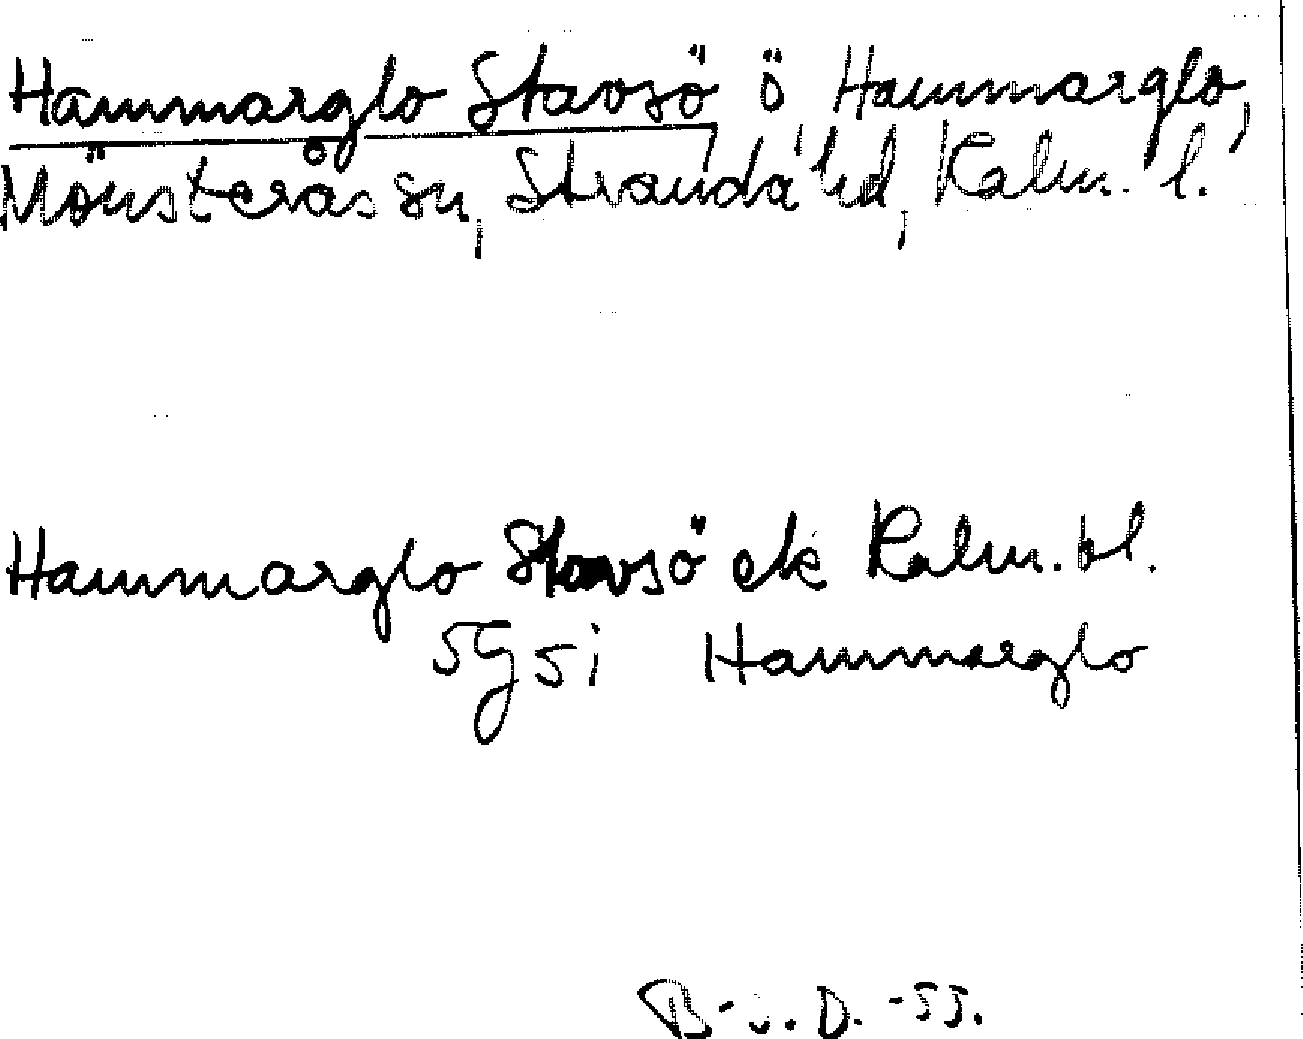 Hammarglo Stavsö ö Hammarglo,
Mönsterås sn, Stranda hd, Kalm. l.
Hammarglo Stavsö ek Kalm. bl.
5G5i Hammarglo
B-s. D. -55.